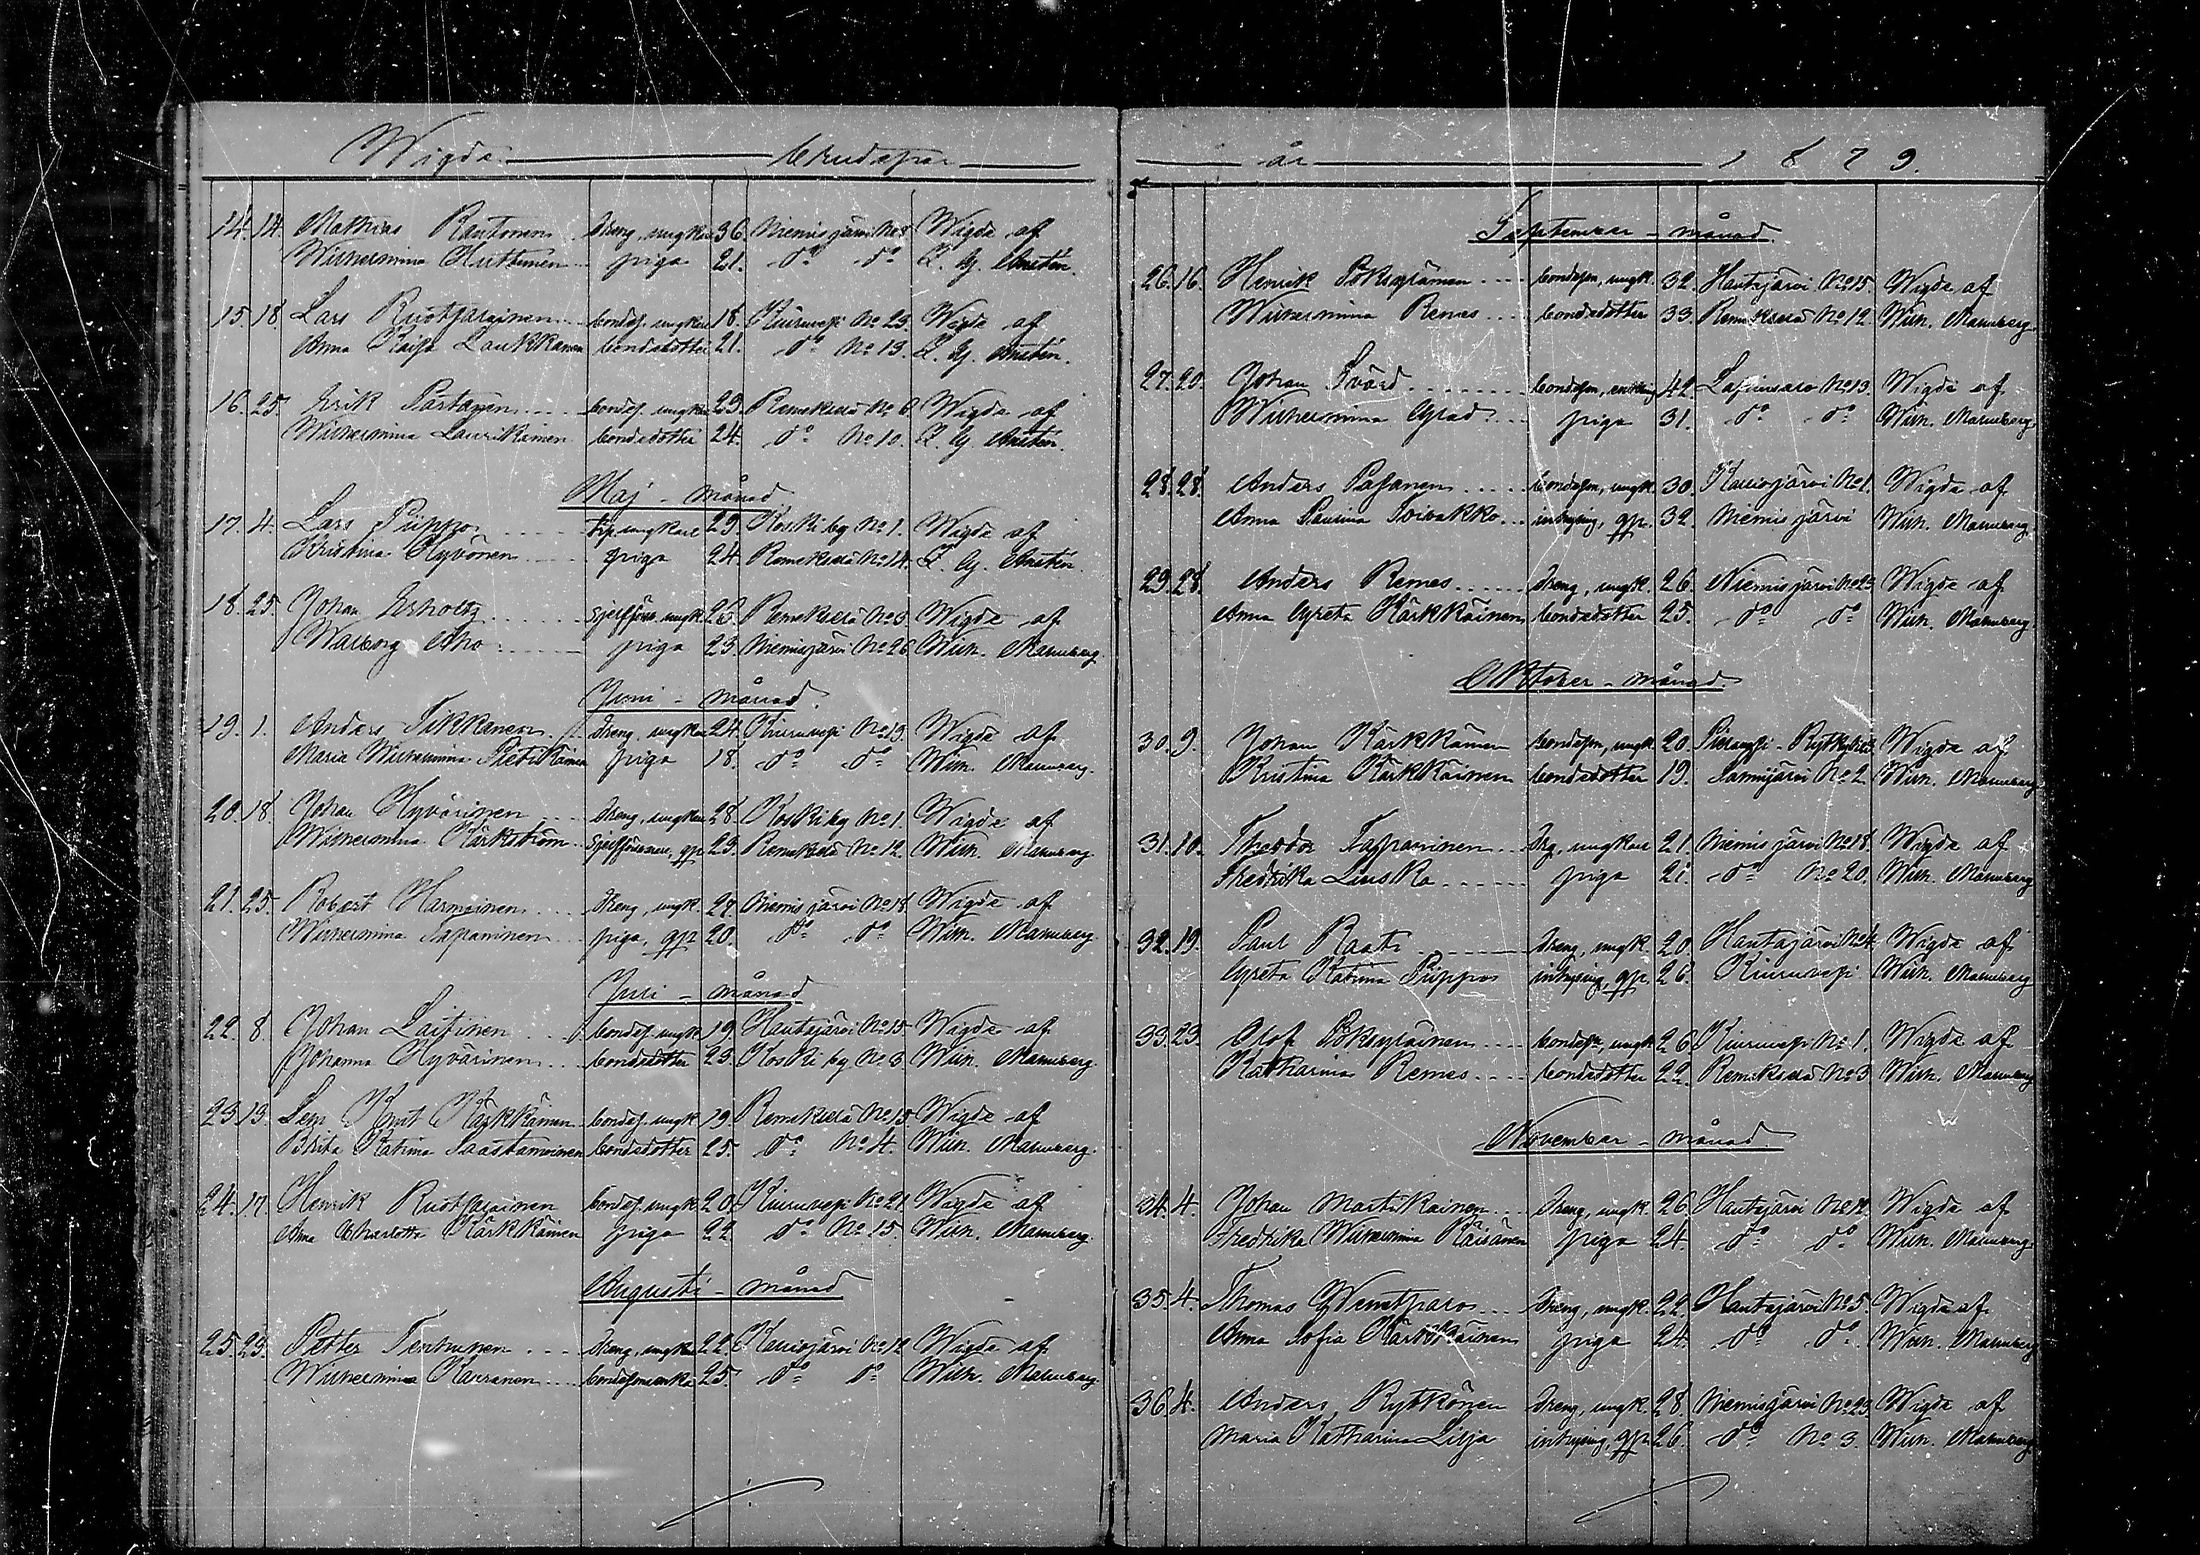 Wigda brudspar
14. 14. Mathias Rautonen dreng, ungkar 36. Niemisjärvi No 8 Wigda af
Wilhermina Huttunen piga 21. do do L. G. Anstén.
15. 18. Lars Ruotsalainen bondes. ungkarl 18. Kiuruvesi No 23. Wigda af
Anna Kaisa Laukkanen bondedotter 21. do No 13. L. G. Anstén.
16. 25. Erik Partanen bondes. ungkar 23. Remeksela No 6. Wigda af
Wilhermina Laurikainen bondedotter 24. do No 10. L. G. Anstén.
Maj - månad
17. 4. Lars Piippo trp ungkarl 29. Koskiby No 1. Wigda af
Kristina Hyvönen piga 24. Remekselä No 14. L. G. Anstén.
18. 25. Johan Erholtz sjelfförs. ungk. 26. Remekselä No 3. Wigda af
Walborg Aho piga 23. Niemisjärvi No 26. Wilh. Malmberg.
Juni - månad.
19. 1. Anders Tikkanen dreng, ungkar 24. Kiuruvesi No 13. Wigda af
Maria Wilhermina Pietikäinen piga 18. do do Wilh. Malmberg.
20. 18. Johan Hyvärinen dreng, ungkar 28. Koskiby No 1. Wigda af
Wilhermina Kärkström sjelfförsörj., qp. 23. Remekselä No 12. Wilh. Malmberg.
21. 25. Robert Harmoinen dreng, ungk. 27. Niemisjärvi No 18. Wigda af
Wilhermina Tapaninen piga, qp. 20. do do Wilh. Malmberg.
Juli - månad
22. 8. Johan Laitinen bondes. ungk. 19. Hautajärvi No 15. Wigda af
Johanna Hyvärinen bondedotter 23. Koskiby No 3. Wilh. Malmberg.
23. 13. Lars Knut Kärkkäinen bondes. ungk. 19. Remekselä No 15. Wigda af
Brita Katrina Saastamoinen bondedotter 25. do No 4. Wilh. Malmberg.
24. 17. Henrik Ruotsalainen bondes. ungk. 20. Kiuruvesi No 21. Wigda af
Anna Charlotta Kärkkäinen piga 22. do No 15. Wilh. Malmberg.
Augusti - månad
25. 23. Petter Tenhunen dreng, ungkar 22. Kauiojärvi No 12. Wigda af
Wilhermina Karranen bondesonenka 25. do do Wilh. Malmberg.
år 1879.
September - månad.
26. 16. Henrik Poksyläinen bondeson, ungk. 32. Hautajärvi No 15. Wigda af
Wilhermina Remes bondedotter 33. Remekselä No 12. Wilh. Malmberg.
27. 20. Johan Svärd bondeson, enkling 42. Lapinsalo No 13. Wigda af
Wilhermina Glad piga 31. do do Wilh. Malmberg.
28. 28. Anders Pasanen bondeson, ungk. 30. Kauiojärvi No 1. Wigda af
Anna Paulina Toivakko inhysing, qp. 32. Niemisjärvi Wilh. Malmberg.
29. 28. Anders Remes dreng, ungk. 26. Niemisjärvi No 23. Wigda af
Anna Greta Kärkkäinen bondedotter 25. do do Wilh. Malmberg.
Oktober - månad.
30. 9. Johan Kärkkäinen bondeson, ungk. 20. Wigda af
Kristina Kärkkäinen bondedotter 19. Samijärvi No 2. Wilh. Malmberg.
31. 10. Theodor Tapaninen drg, ungkar 21. Niemisjärvi No 18. Wigda af
Fredrika Linska piga 21. do No 20. Wilh. Malmberg.
32. 19. Paul Raati dreng, ungk. 20. Hautajärvi No 4. Wigda af
Greta Katrina Piippo inhysing, qp. 26. Kiuruvesi Wilh. Malmberg
33. 23. Olof Poksyläinen bondeson, ungk. 26. Kiuruvesi No 1. Wigda af
Katharina Remes bondedotter 22. Remekselä No 3. Wilh. Malmberg
November - månad.
34. 4. Johan Martikainen dreng, ungk. 26. Hautajärvi No 12. Wigda af
Fredrika Wilhermina Räisänen piga 24. do do Wilh. Malmberg.
35. 4. Thomas dreng, ungk. 22. Hautajärvi No 5. Wigda af
Anna Sofia Kärkkäinen piga 24. do do Wilh. Malmberg
36. 4. Anders Rytkönen dreng, ungk. 28. Niemisjärvi No 23. Wigda af
Maria Katharina Lilja inhysing, qp. 26. do No 3. Wilh. Malmberg